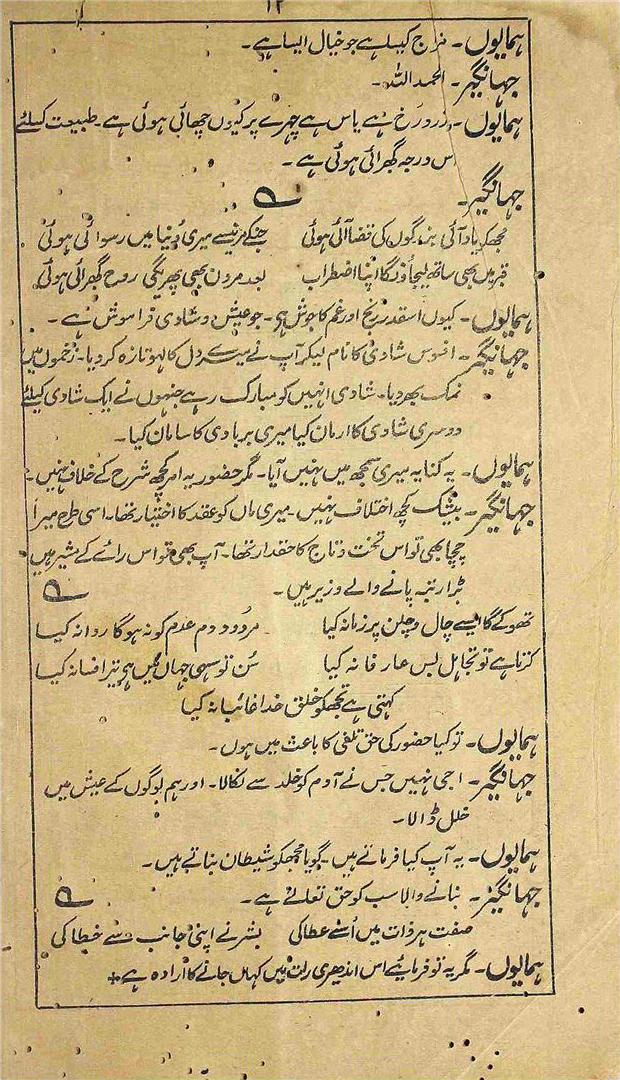 ۱۲
ہمایوں۔ مزاج کیسا ہے جو خیال ایسا ہے۔
جہانگیر۔ الحمدللہ۔
ہمایوں۔ زرد رخ ہے یاس ہے چہرے پر کیوں چھائی ہوئی ہے۔ طبیعت کسلئے
اس درجہ گھبرائی ہوئی ہے۔
جہانگیر۔
مجھکو یاد آئی بزرگوں کی قضا آئی ہوئی جنکے مرنیسے میری دنیا میں رسوائی ہوئی
قبر میں بھی ساتھ لیجاؤنگا اپنا اضطراب بعد مردن بھی پھریگی روح گھبرائی ہوئی
ہمایوں۔ کیوں اسقدر رنج اور غم کا جوش ہی۔ جو عیش و شادی فراموش ہے۔
جہانگیر۔ افسوس شادی کا نام لیکر آپ نے میرے دل کا لہو تازہ کر دیا۔ زخموں میں
نمک بھر دیا۔ شادی انہیں کو مبارک رہے جنہوں نے ایک شادی کیلئے
دوسری شادی کا ارمان کیا میری بربادی کا سامان کیا۔
ہمایوں۔ یہ کنایہ میری سمجھ میں نہیں آیا۔ مگر حضور یہ امر کچھ شرح کے خلاف نہیں۔
جہانگیر۔ بیشک کچھ اختلاف نہیں۔ میری ماں کو عقد کا اختیار تھا۔ اسی طرح میرا
چچا بھی تو اس تخت و تاج کا حقدار تھا۔ آپ بھی تو اس رائے کے مشیر ہیں
بڑا رتبہ پانے والے وزیر ہیں۔
تھوکے گا ایسے چال و چلن پر زمانہ کیا مردود دم عدم کو نہ ہوگا روانہ کیا
کرتا ہے تو تجاہل بس عارفانہ کیا سُن تو سہی جہاں میں ہے تیرا فسانہ کیا
کہتی ہے تجھکو خلق خدا غائبانہ کیا
ہمایوں۔ تو کیا حضور کی حق تلفی کا باعث میں ہوں۔
جہانگیر۔ اجی نہیں جس نے آدم کو خلد سے نکالا۔ اور ہم لوگوں کے عیش میں
خلل ڈالا۔
ہمایوں۔ یہ آپ کیا فرماتے ہیں۔ گویا مجھکو شیطان بناتے ہیں۔
جہانگیر۔ بنانے والا سب کو حق تعالےٰ ہے۔
صفت ہر ذات میں اُسنے عطا کی بشر نے اپنی جانب سے خطا کی
ہمایوں۔ مگر یہ تو فرمایئے اس اندھیری رات میں کہاں جانے کا ارادہ ہے